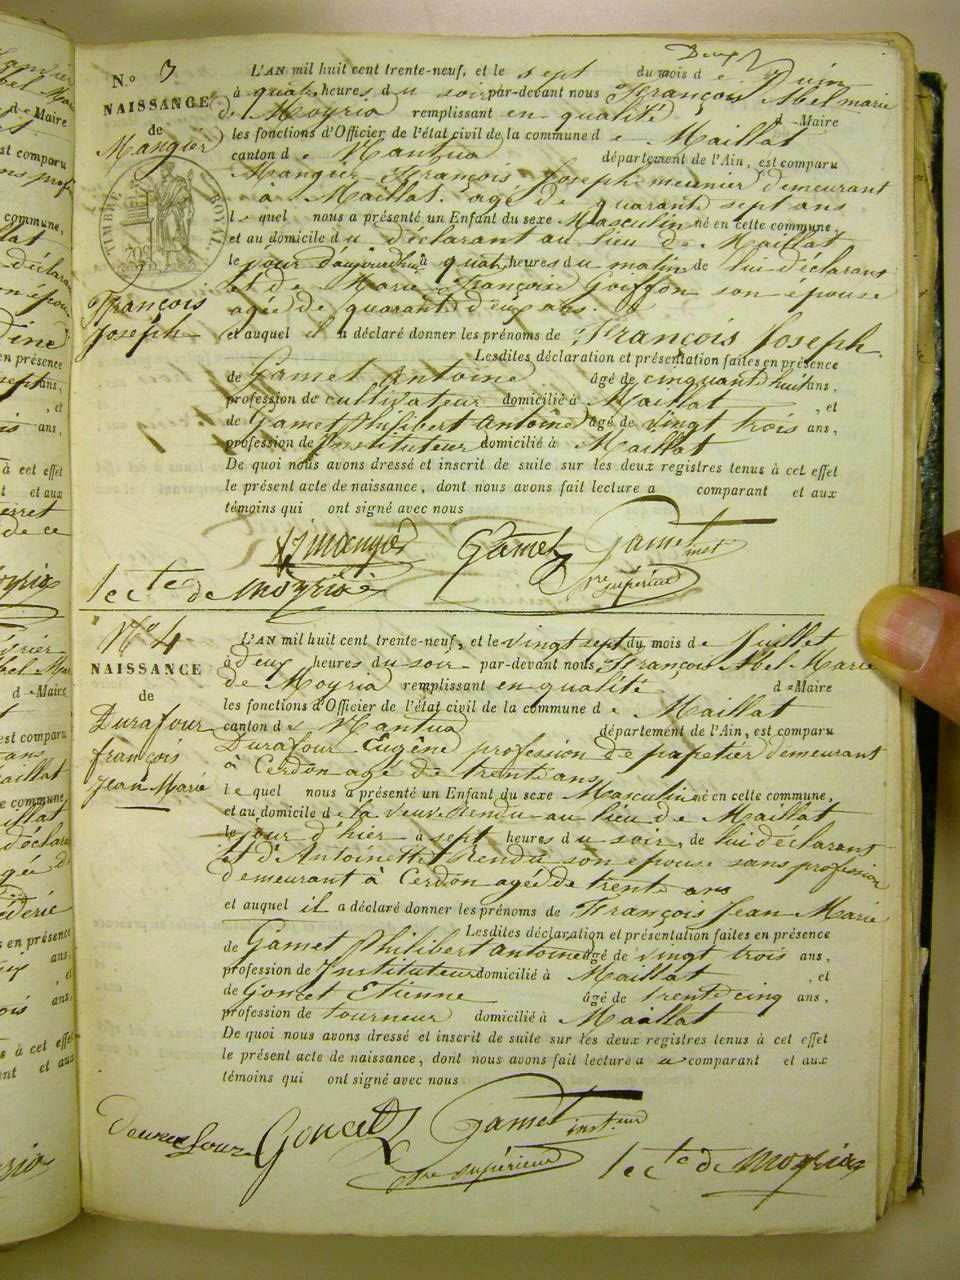 Deux
N.° 3
NAISSANCE
de
Mangier
TIMBRE ROYAL
François
Joseph
L'AN mil huit cent trente-neuf, et le sept du mois de Juin
à quatre heures du soir par-devant nous François Abel marie
de Moyria remplissant en qualité d Maire
les fonctions d'Officier de l'état civil de la commune de Maillat
canton de Nantua département de l'Ain, est comparu
Mangier François Joseph meunier demeurant
à Maillat agé de quarante sept ans
lequel nous a présenté un Enfant du sexe Masculin né en cette commune,
et au domicile du déclarant au lieu de Maillat
le jour d'aujourdhui à quatre heures du matin de lui déclarant
et de Marie Françoise Goiffon son épouse
agée de quarante deux ans.
et auquel il a déclaré donner les prénoms de François Joseph
Lesdites déclaration et présentation faites en présence
de Gamet Antoine âgé de cinquante huit ans,
profession de cultivateur domicilié à Maillat , et
de Gamet Philibert Antoine âgé de vingt trois ans,
profession de Instituteur domicilié à Maillat
De quoi nous avons dressé et inscrit de suite sur les deux registres tenus à cet effet
le présent acte de naissance, dont nous avons fait lecture a comparant et aux
témoins qui ont signé avec nous
fj mangier Gamet Gamet
inst
re supérieur
le cte de Moyria
N.° 4
NAISSANCE
de
Durafour
françois
Jean Marie
L'AN mil huit cent trente-neuf, et le vingt sept du mois de Juillet
à deux heures du soir par-devant nous François Abel Marie
de Moyria remplissant en qualité d Maire
les fonctions d'Officier de l'état civil de la commune de Maillat
canton de Nantua département de l'Ain, est comparu
Durafour Eugène profession de papetier demeurant
à Cerdon agé de trente ans
lequel nous a présenté un Enfant du sexe Masculin né en cette commune,
et au domicile de la veuve Rendu au lieu de Maillat
le jour d'hier à sept heures du soir, de lui déclarant
et d'Antoinette Rendu son épouse sans profession
demeurant à Cerdon agée de trente ans
et auquel il a déclaré donner les prénoms de François Jean Marie
Lesdites déclaration et présentation faites en présence
de Gamet Philibert Antoine âgé de vingt trois ans,
profession de Instituteur domicilié à Maillat , et
de Goncet Etienne âgé de trente cinq ans,
profession de tourneur domicilié à Maillat
De quoi nous avons dressé et inscrit de suite sur les deux registres tenus à cet effet
le présent acte de naissance, dont nous avons fait lecture a u comparant et aux
témoins qui ont signé avec nous
Goncet Gamet
inst.eur
re supérieur
le cte de Moyria